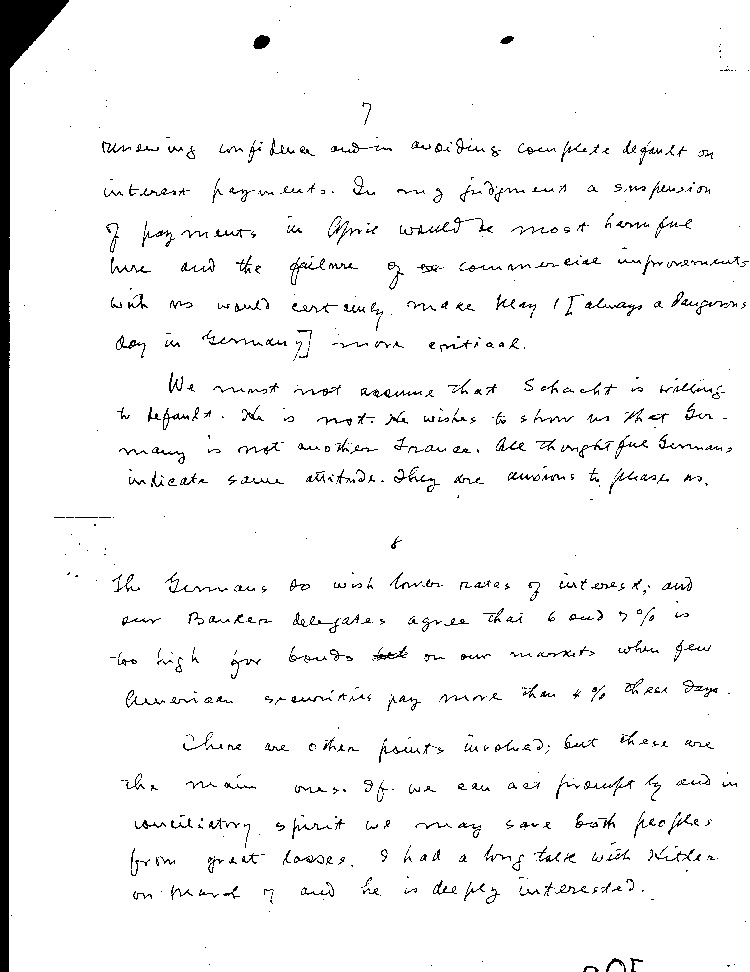 7
renewing confidence and in avoiding complete default on
interest payments. In my judgment a suspension
of payments in April would be most harmful
here and the failure of commercial improvements
with us would certainly make May 1 [always a dangerous
day in Germany] more critical.
We must not assume that Schacht is willing
to default. He is not. He wishes to show us that Ger-
many is not another France. All thoughtful Germans
indicate same attitude. They are anxious to please us.
8
The Germans do wish lower rates of interest; and
our Banker delegates agree that 6 and 7% is
too high for bonds on our markets when few
American securities pay more than 4% these days.
There are other points involved; but these are
the main ones. If we can act promptly and in
conciliatory spirit we may save both peoples
from great losses. I had a long talk with Hitler
on March 7 and he is deeply interested.